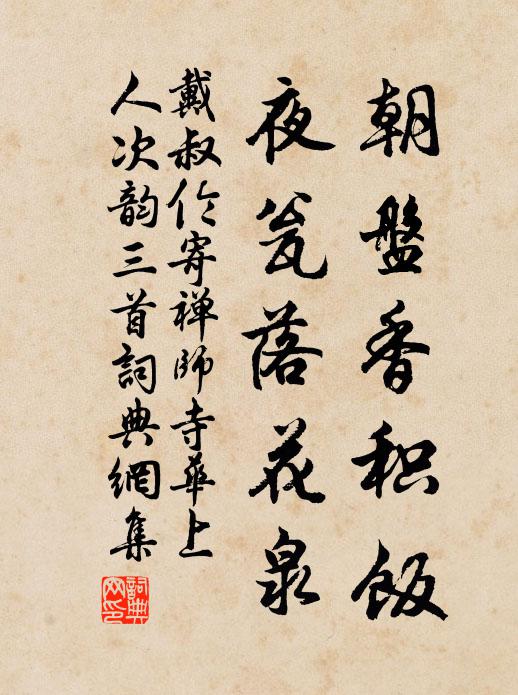 朝盤香积飯
夜瓮落花泉
戴叔伦寄禅師寺華上
人次韵三首詞典網集
詞典
网印